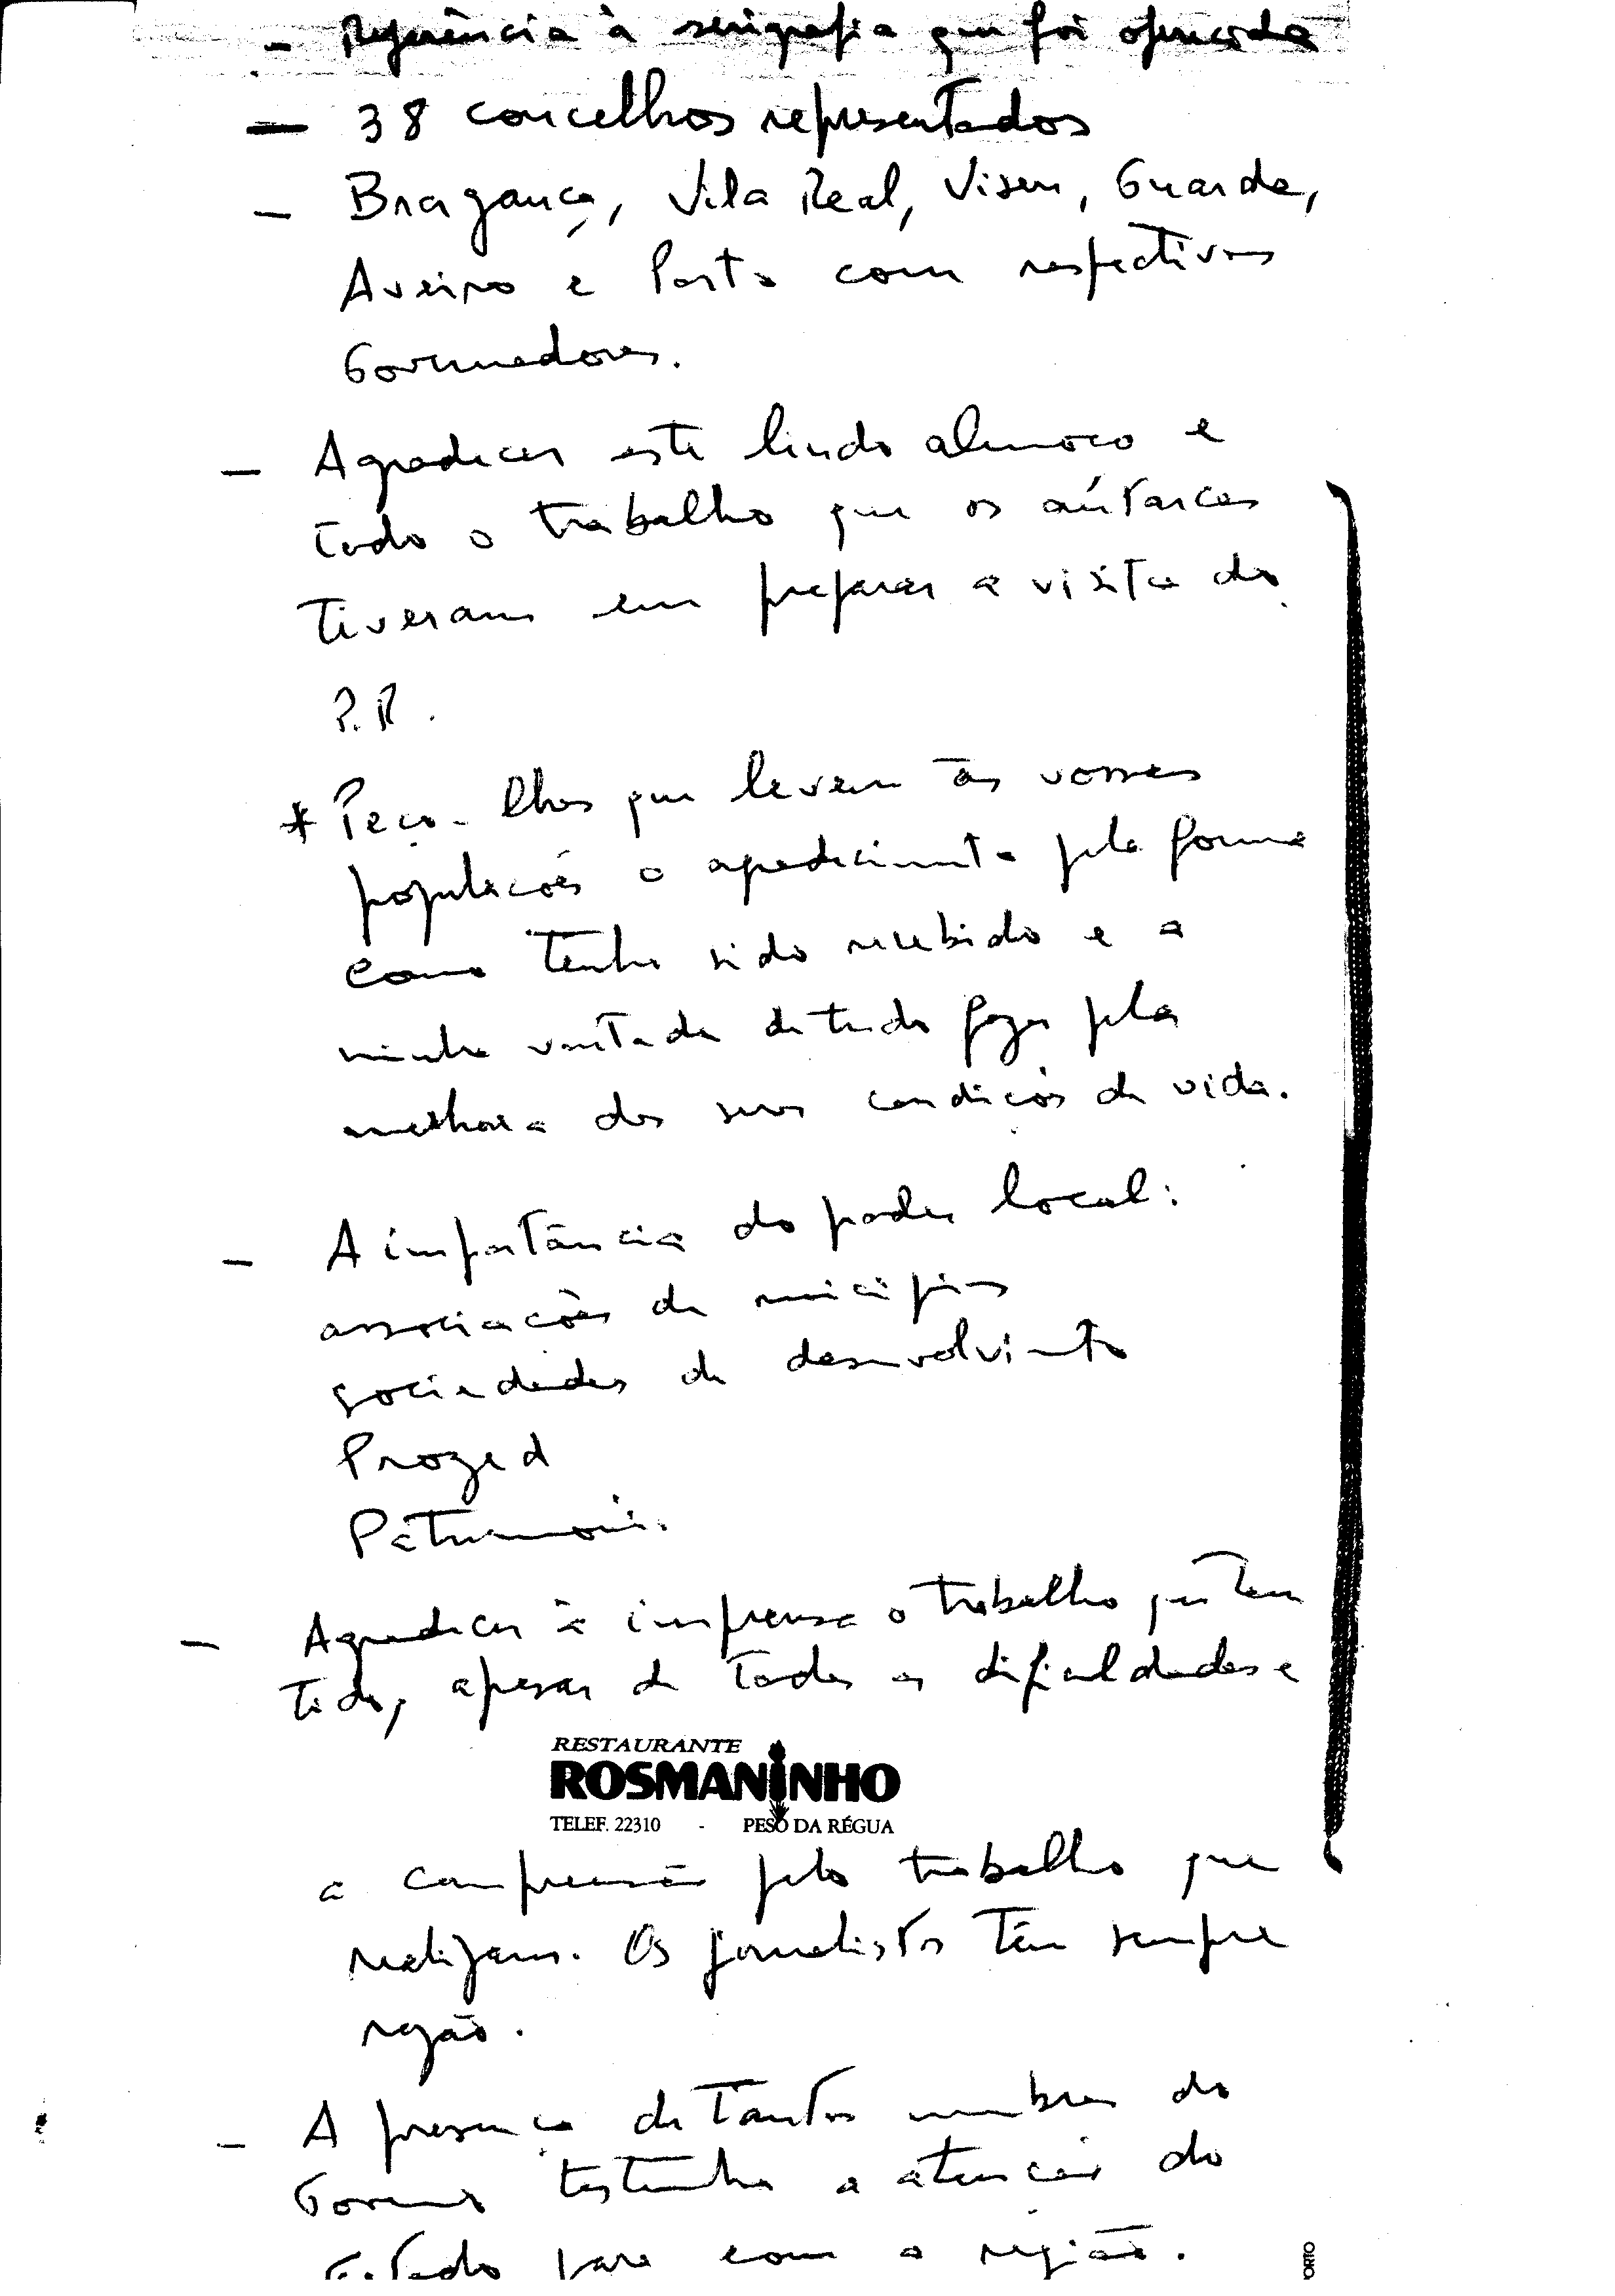 - Referência à serigrafia que foi oferecida
- 38 concelhos representados
- Bragança, Vila Real, Viseu, Guarda,
Aveiro e Porto com respectivos
Governadores.
- Agradecer este lindo almoço e
todo o trabalho que os autarcas
tiveram em preparar a visita do
P.R.
* Peço-lhes que levem às vossas
populações o agradecimento pela forma
como tenho sido recebido e a
minha vontade de tudo fazer pela
melhoria das suas condições de vida.
- A importância do poder local:
associações de municípios
sociedades de desenvolvimento
Prozed
Património.
- Agradecer à imprensa o trabalho que tem
tido, apesar de todas as dificuldades e
RESTAURANTE
ROSMANINHO
TELEF. 22310 - PESO DA RÉGUA
a compreensão pelo trabalho que
realizam. Os jornalistas têm sempre
razão.
- A presença de tantos membros do
Governo testemunha a atenção do
Estado para com a região.
ORTO